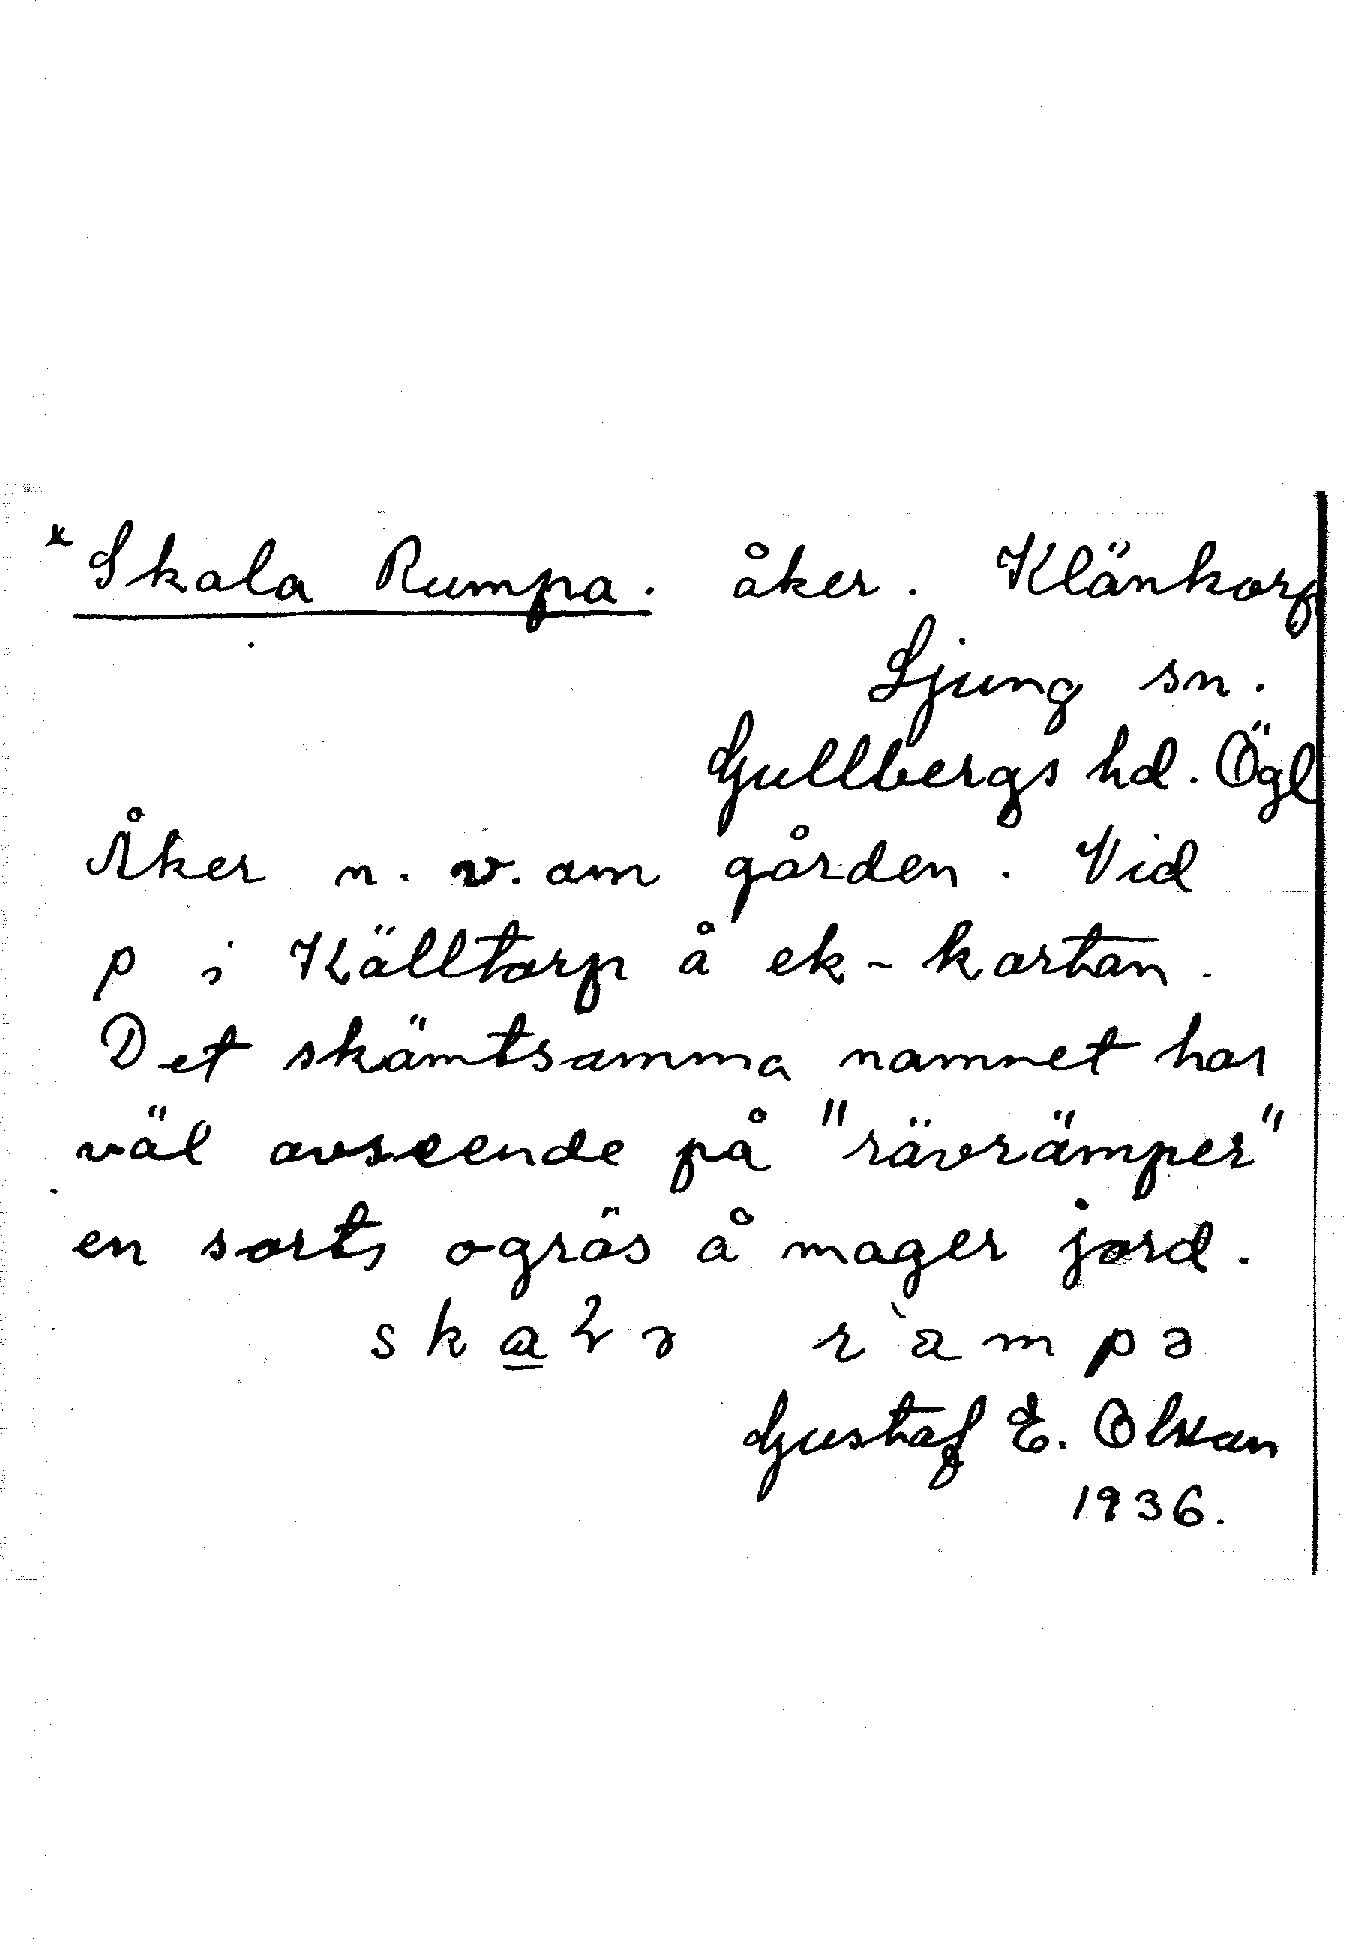 *Skala Rumpa. åker. Klänkorp
Ljung sn.
Gullbergs hd. Ögl
Åker n. v. om gården. Vid
p i Källtorp å ek-kartan.
Det skämtsamma namnet har
väl avseende på "rävrämper"
en sorts ogräs å mager jord.
Gustaf E. Olsson
1936.